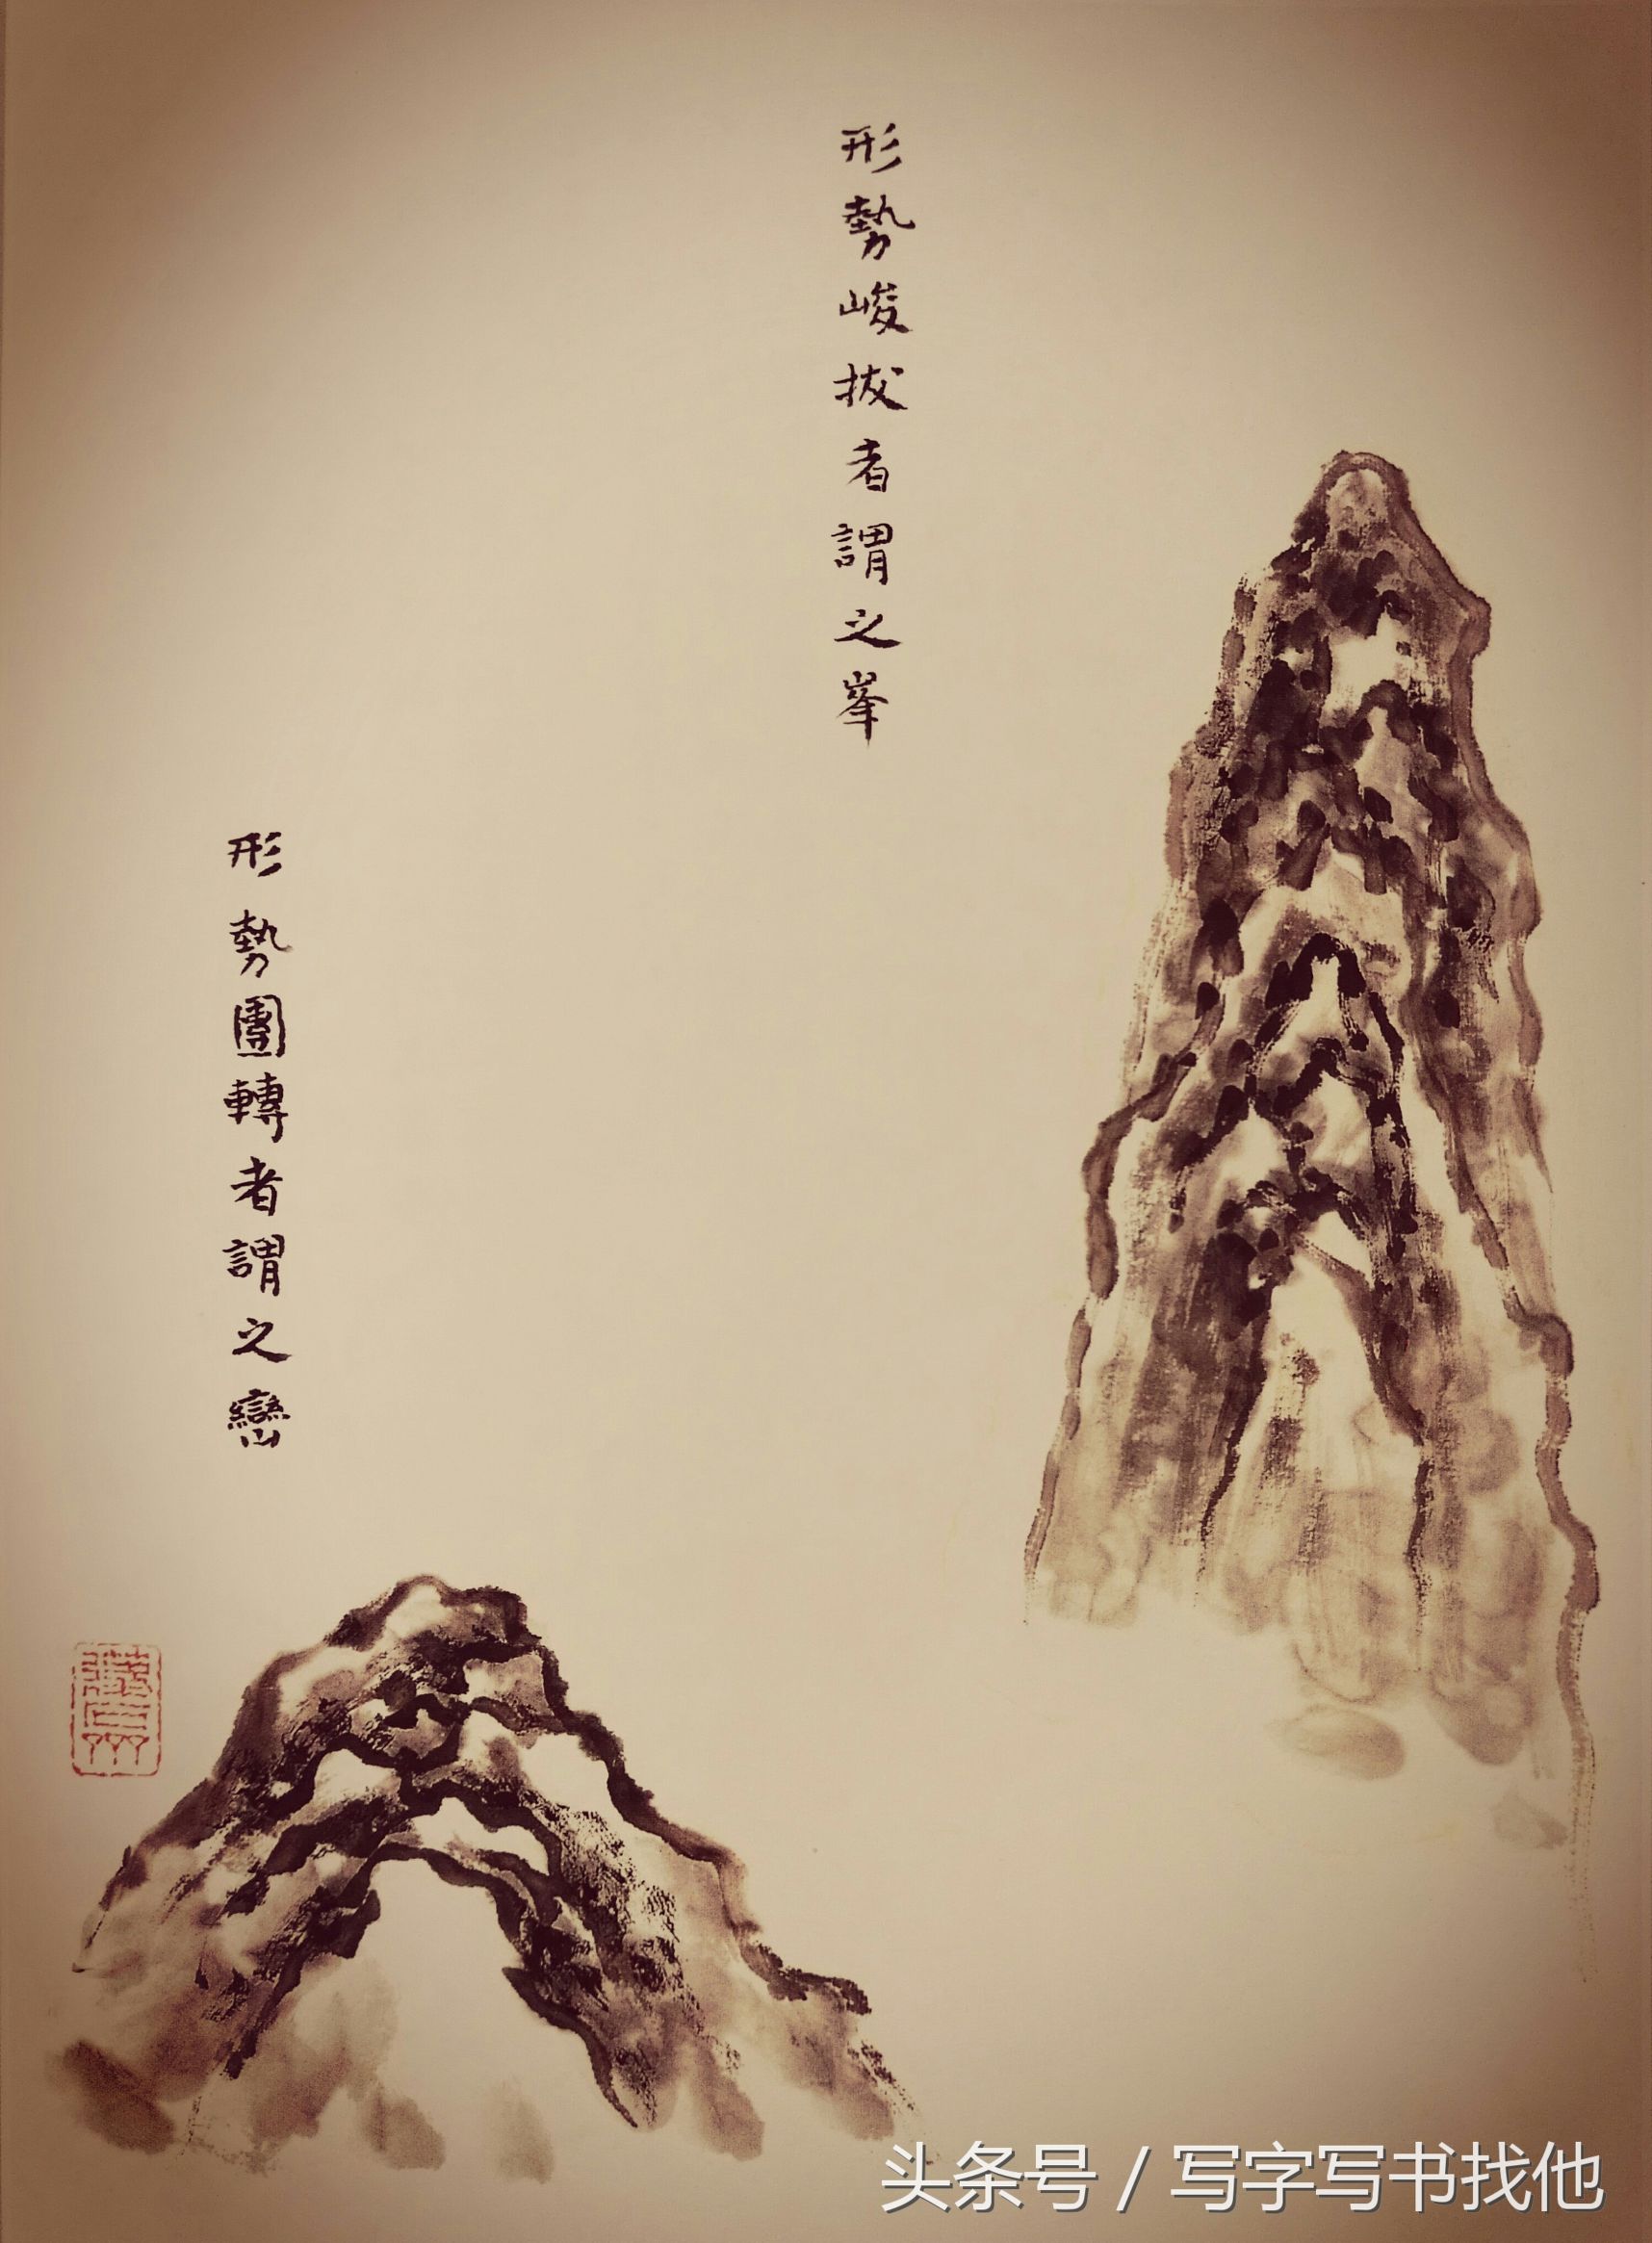 形勢峻拔者謂之峯
形勢團轉者謂之巒
头条号 / 写字写书找他